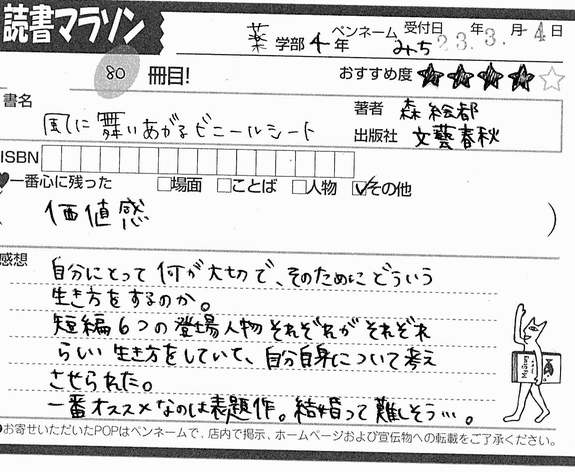 読書マラソン
薬 学部 4 年 ペンネーム みち 受付日 23年 3.月 -4日
80 冊目! おすすめ度 ★★★★☆
書名 風に舞いあがるビニールシート
著者 森絵都
出版社 文藝春秋
ISBN
♥一番心に残った □場面 □ことば □人物 ☑その他
( 価値感 )
感想
自分にとって何が大切で、そのためにどういう
生き方をするのか。
短編6つの登場人物それぞれがそれぞれ
らしい生き方をしていて、自分自身について考え
させられた。
一番オススメなのは表題作。結婚って難しそう…。
●お寄せいただいたPOPはペンネームで、店内で掲示、ホームページおよび宣伝物への転載をご了承ください。